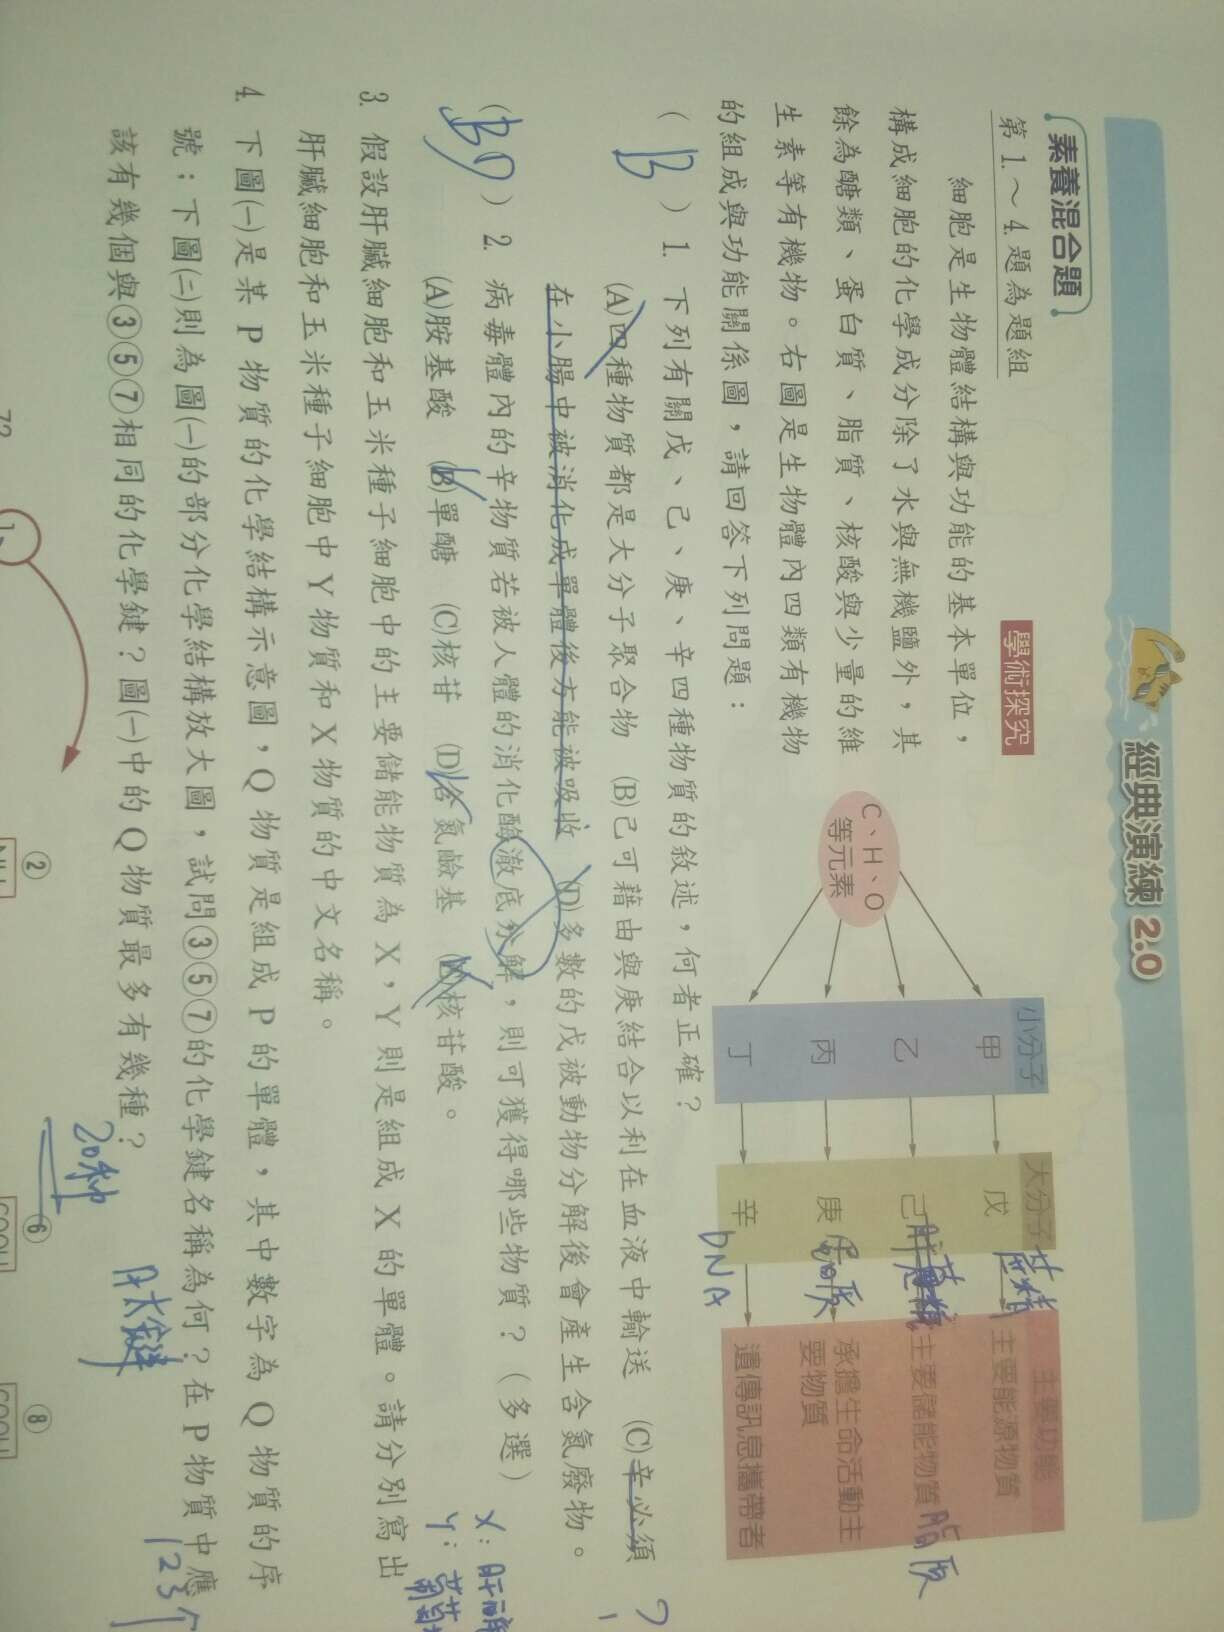 經典演練 2.0
素養混合題
第 1.～4. 題為題組
學術探究
細胞是生物體結構與功能的基本單位，
構成細胞的化學成分除了水與無機鹽外，其
餘為醣類、蛋白質、脂質、核酸與少量的維
生素等有機物。右圖是生物體內四類有機物
的組成與功能關係圖，請回答下列問題：
C、H、O
等元素
小分子
甲
乙
丙
丁
大分子
戊
己
庚
辛
主要功能
主要能源物質
主要儲能物質
承擔生命活動主
要物質
遺傳訊息攜帶者
脂質
DNA
( B ) 1. 下列有關戊、己、庚、辛四種物質的敘述，何者正確？
(A)四種物質都是大分子聚合物 (B)己可藉由與庚結合以利在血液中輸送 (C)辛必須
在小腸中被消化成單體後方能被吸收 (D)多數的戊被動物分解後會產生含氮廢物。
( BD ) 2. 病毒體內的辛物質若被人體的消化酶澈底分解，則可獲得哪些物質？（多選）
(A)胺基酸 (B)單醣 (C)核苷 (D)含氮鹼基 (E)核苷酸。
3. 假設肝臟細胞和玉米種子細胞中的主要儲能物質為 X，Y 則是組成 X 的單體。請分別寫出
肝臟細胞和玉米種子細胞中 Y 物質和 X 物質的中文名稱。
X：肝醣
Y：葡萄
4. 下圖(一)是某 P 物質的化學結構示意圖，Q 物質是組成 P 的單體，其中數字為 Q 物質的序
號；下圖(二)則為圖(一)的部分化學結構放大圖，試問③⑤⑦的化學鍵名稱為何？在 P 物質中應
該有幾個與③⑤⑦相同的化學鍵？圖(一)中的 Q 物質最多有幾種？
肽鍵
123個
20種
②
⑥
⑧
COOH
72